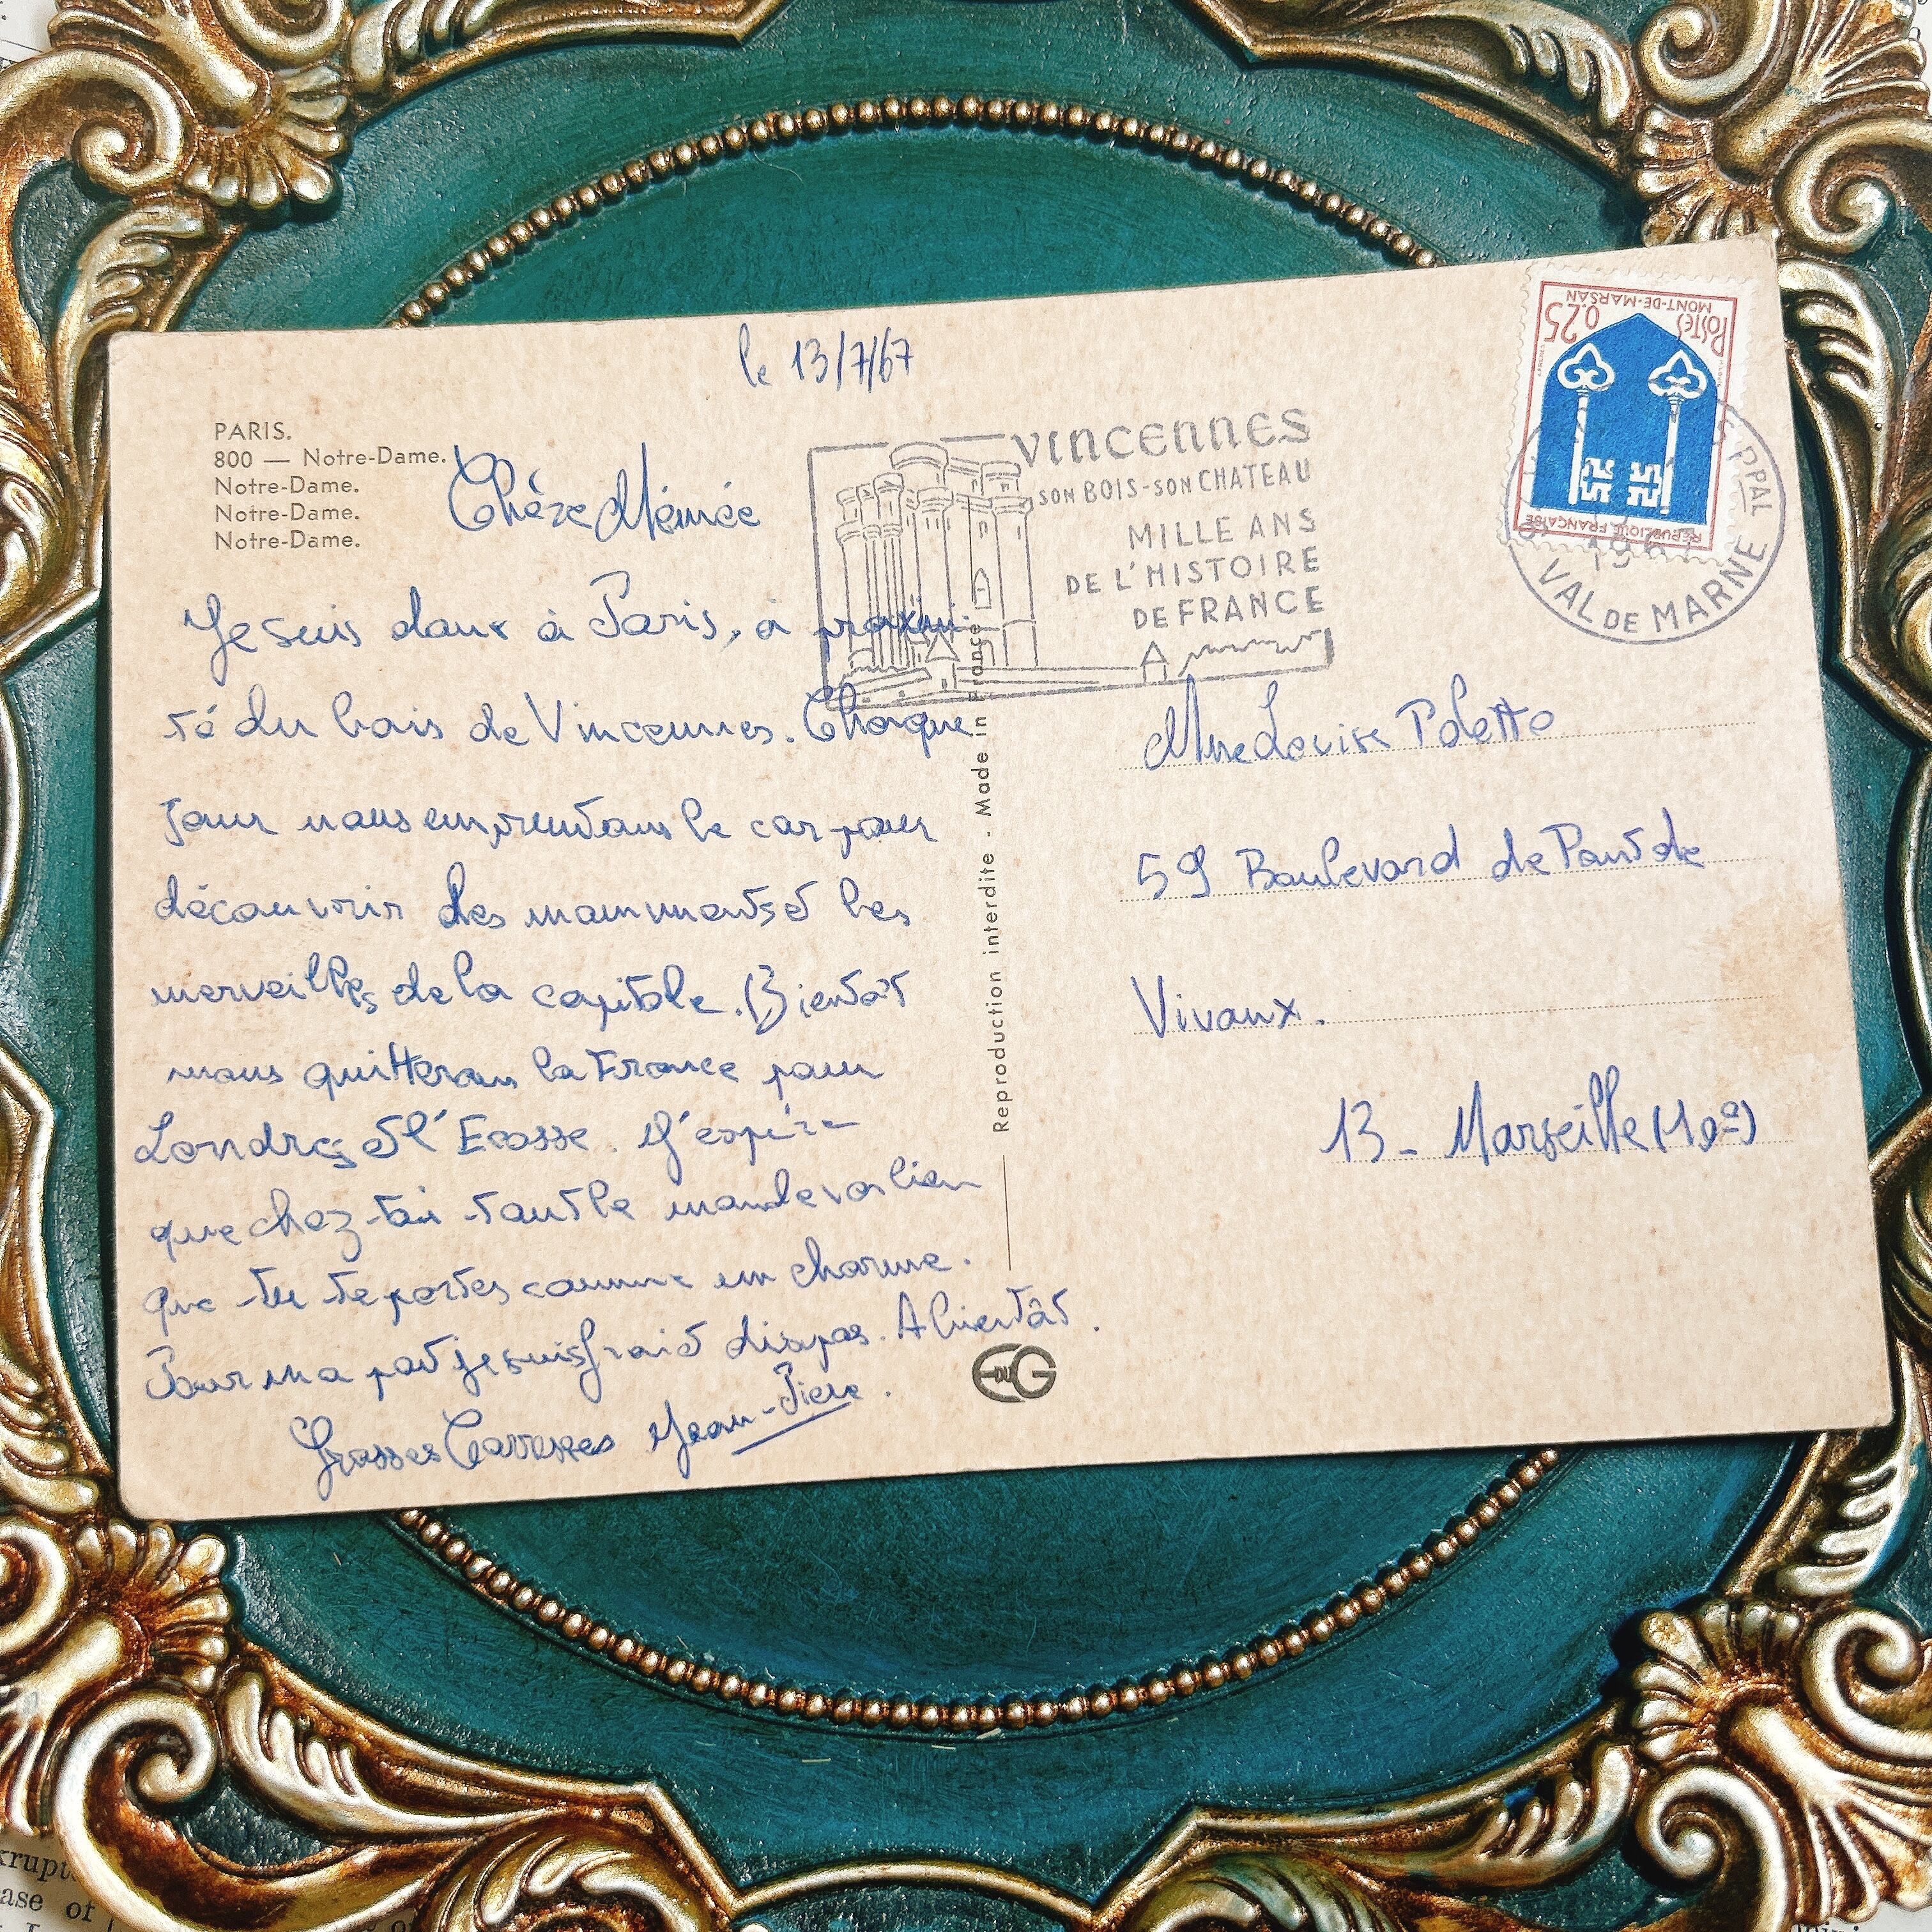 le 13/7/67
PARIS.
800 — Notre-Dame.
Notre-Dame.
Notre-Dame.
Notre-Dame.
Chère Mémée
Je suis donc à Paris, à proximi-
té du bois de Vincennes. Chaque
jour nous empruntons le car pour
découvrir des monuments et les
merveilles de la capitale. Bientôt
nous quitterons la France pour
Londres et l'Ecosse. J'espère
que chez-toi tout le monde va bien
que tu te portes comme un charme.
Pour ma part je suis frais et dispos. A bientôt.
Grosses Caresses Jean-Piere.
VINCENNES
SON BOIS-SON CHATEAU
MILLE ANS
DE L'HISTOIRE
DE FRANCE
Reproduction interdite - Made in France
EDUG
MONT-DE-MARSAN
POSTES 0.25
REPUBLIQUE FRANCAISE
S PPAL
1967
VAL DE MARNE
Mme Louise Poletto
59 Boulevard de Pont de
Vivaux.
13 - Marseille (10e)
ase of